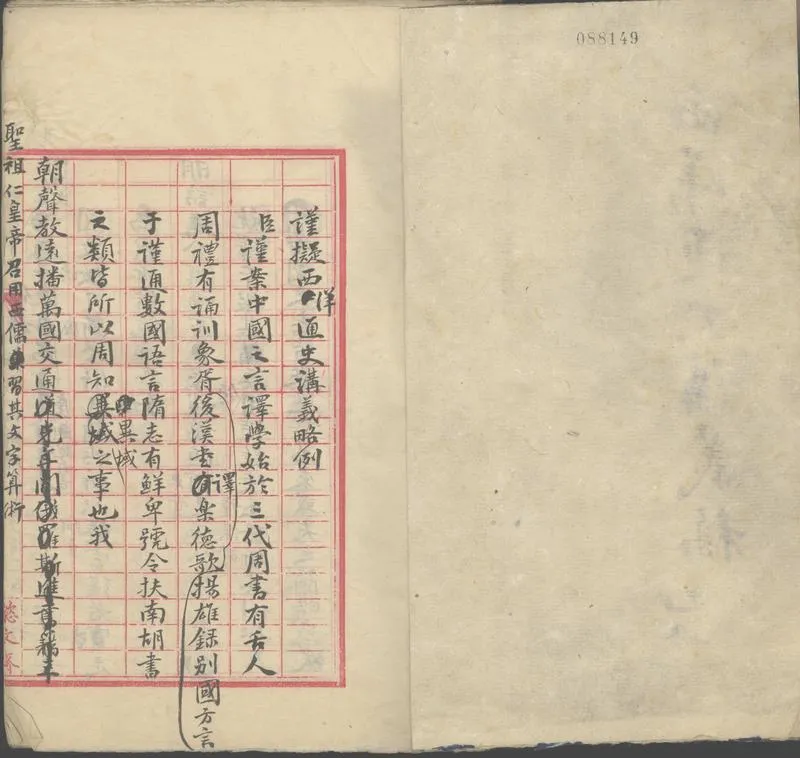 088149
謹擬西洋通史講義略例
臣謹案中國之言譯學始於三代周書有舌人
周禮有誦訓象胥後漢书譯楽德歌揚雄録别國方言
于謹通數國語言隋志有鮮卑號令扶南胡書
之類皆所以周知異域之事也我
朝聲教遠播萬國交通道光年間俄羅斯進書籍
聖祖仁皇帝召用西儒習其文字算術
懿文齋